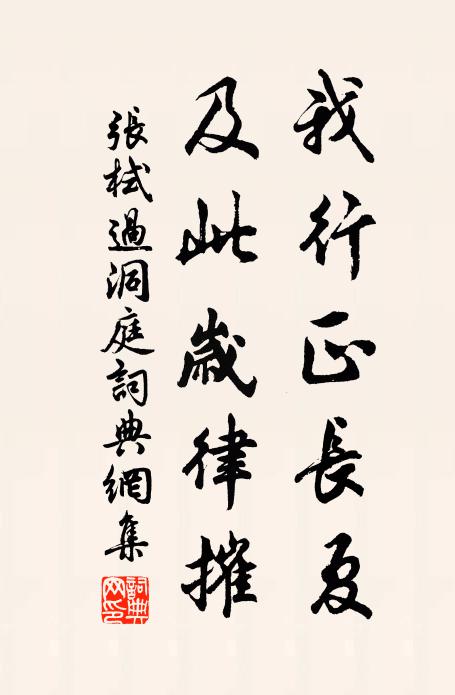 我行正長夏
及此歲律摧
張栻過洞庭詞典網集
詞典网印